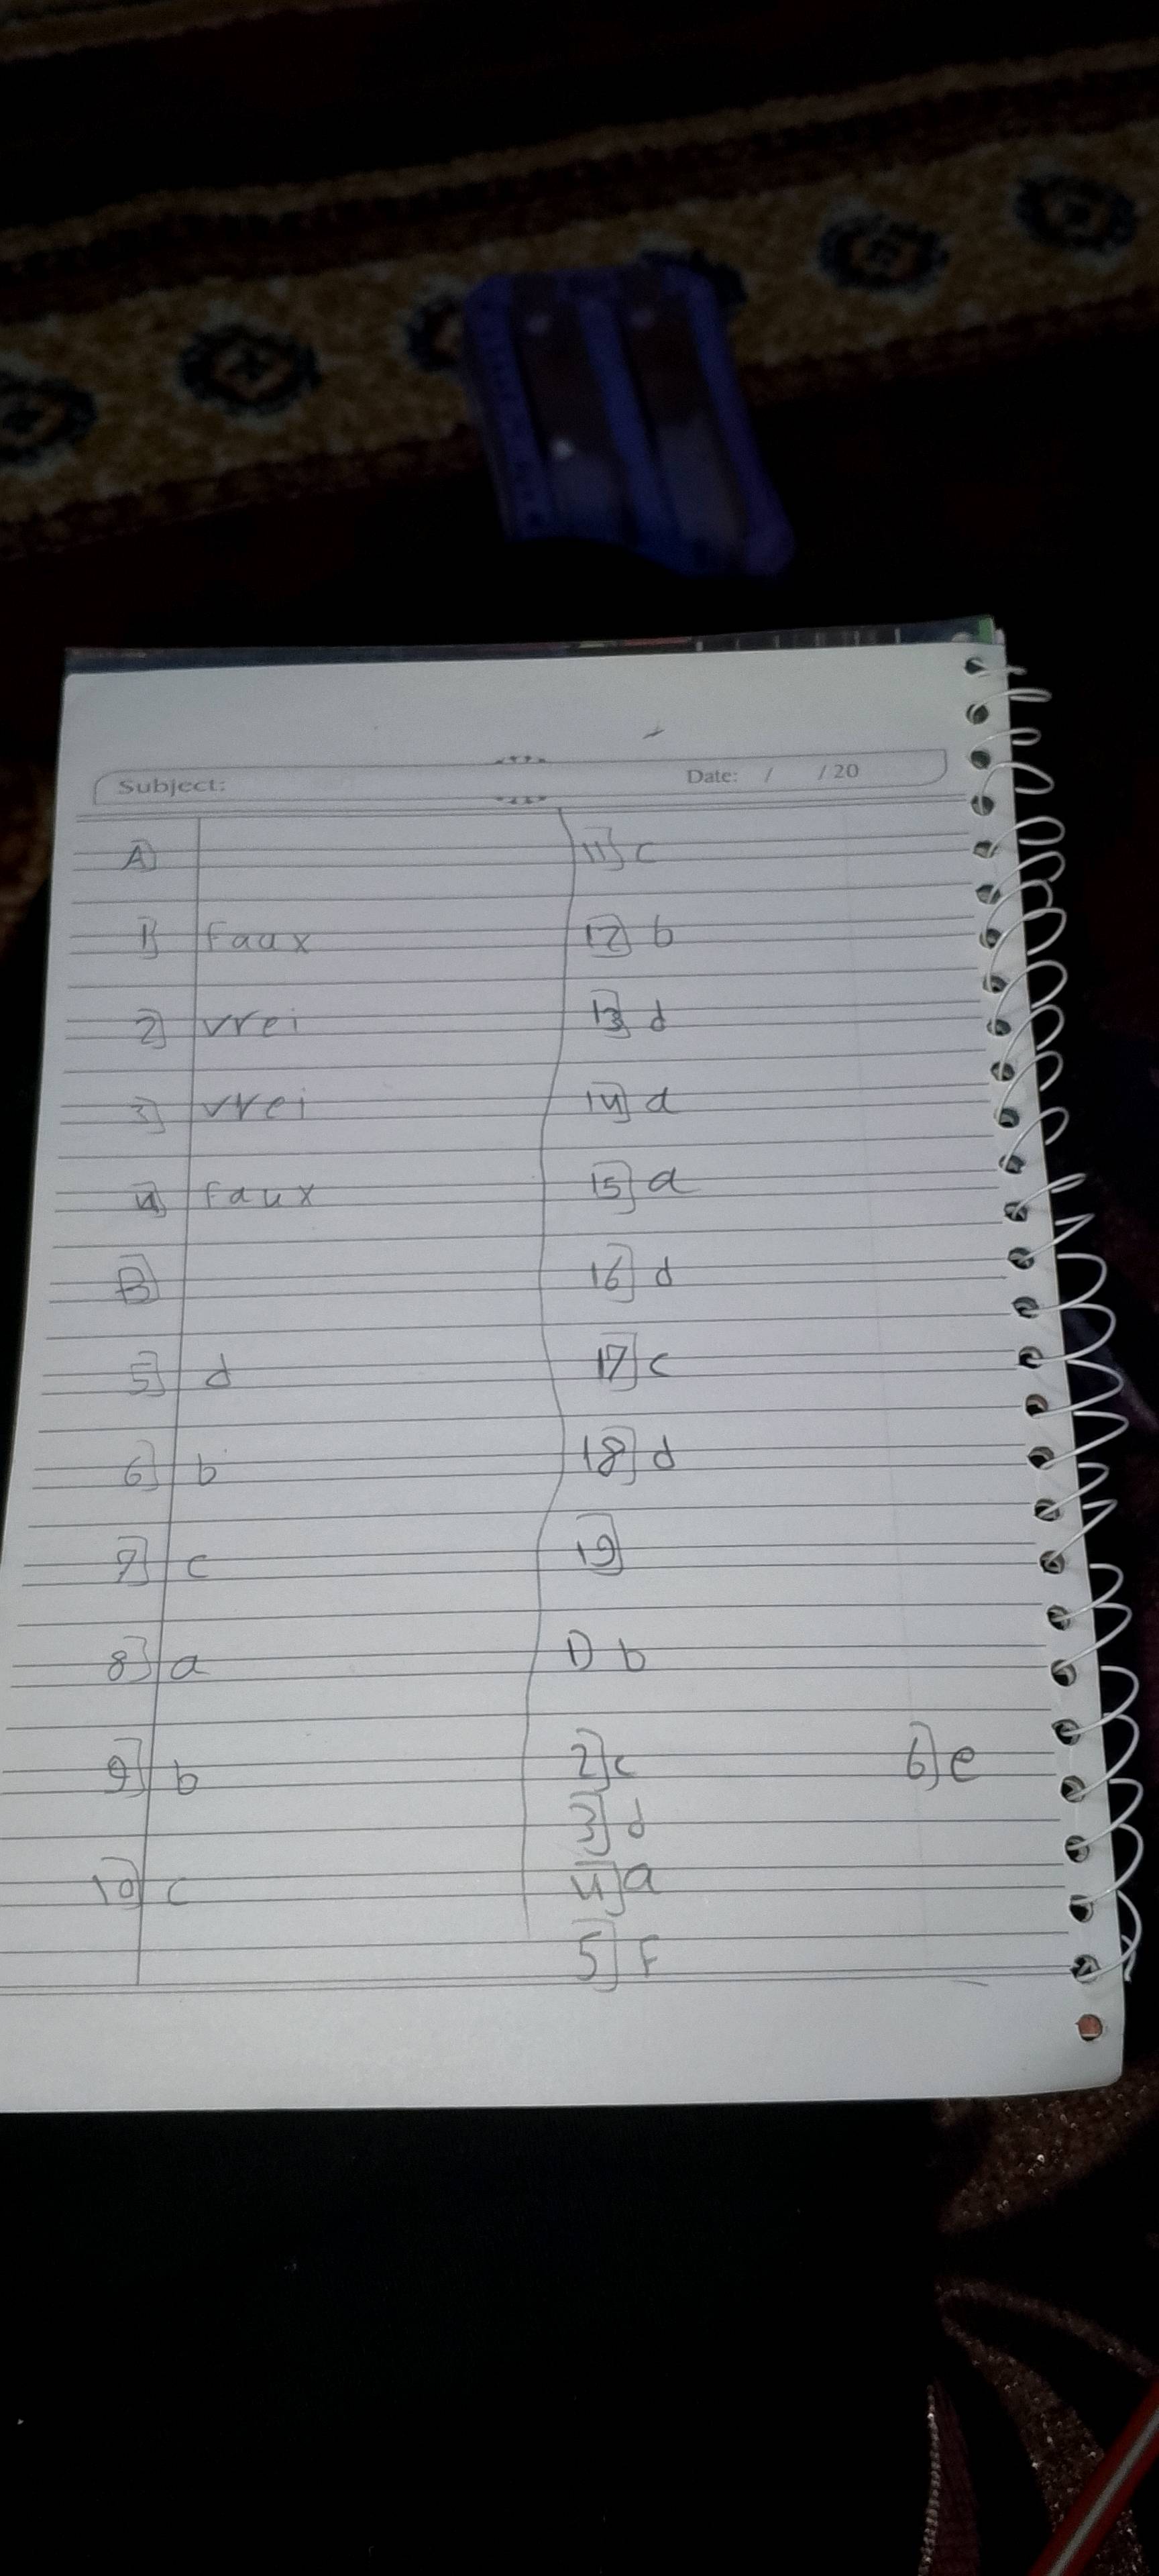 Subject:
Date: / / 20
A)
1) Faux
2) vrei
3) vrei
4) Faux
B)
5) d
6) b
7) c
8) a
9) b
10) c
11) c
12) b
13) d
14) a
15) a
16) d
17) c
18) d
19)
1) b
2) c
3) d
4) a
5) F
6) e